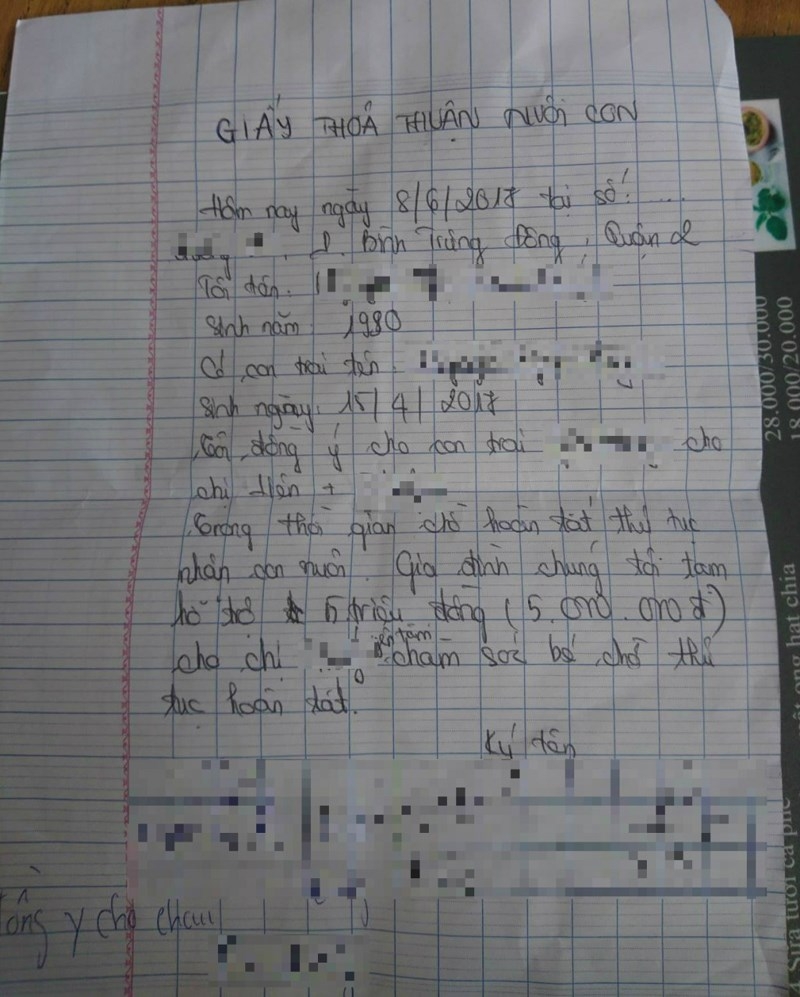 GIẤY THOẢ THUẬN NUÔI CON
Hôm nay ngày 8/6/2017 tại số: ....
P. Bình Trưng Đông, Quận 2
Tôi tên:
Sinh năm: 1980
Có con trai tên:
Sinh ngày: 15/4/2017
Tôi đồng ý cho con trai cho
chị Hiền +
Trong thời gian chờ hoàn tất thủ tục
nhận con nuôi. Gia đình chúng tôi tạm
hỗ trợ 5 triệu đồng (5.000.000đ)
cho chị yên tâm chăm sóc bé chờ thủ
tục hoàn tất.
Ký tên
đồng ý cho cháu
28.000/30.000
18.000/20.000
ong hạt chia
Sữa tươi cà phê